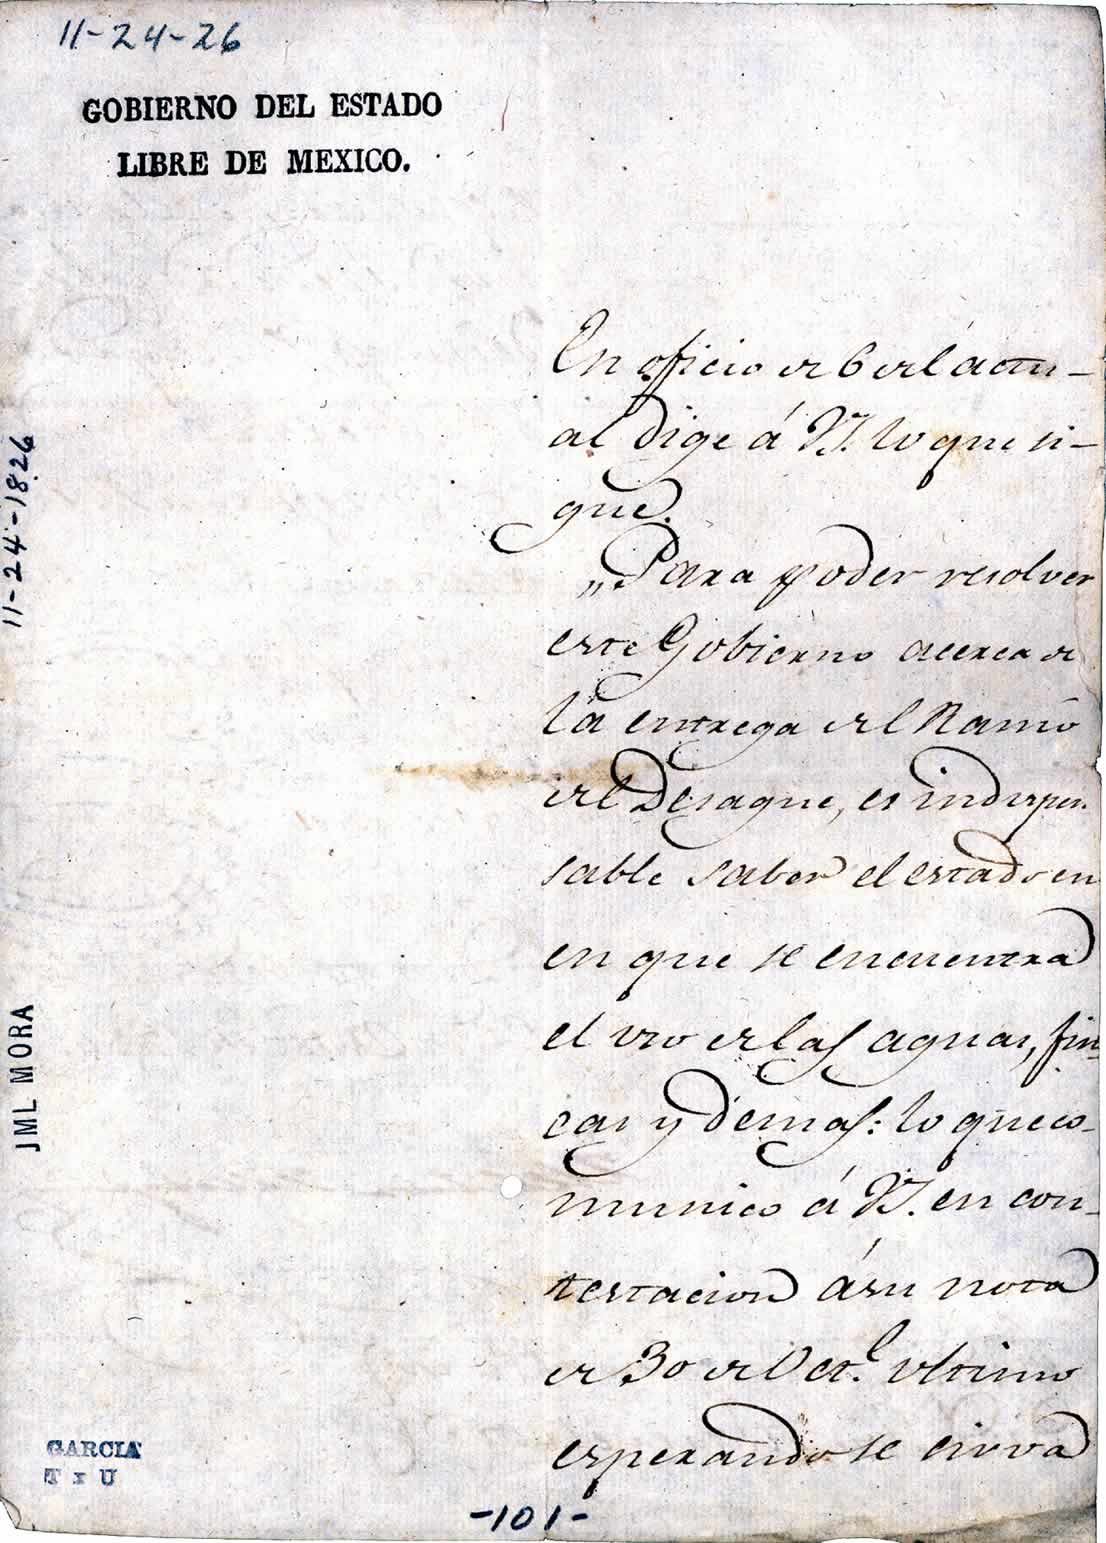 11-24-26
GOBIERNO DEL ESTADO
LIBRE DE MEXICO.
En oficio de 6 del actu-
al dige á V.S. lo que si-
gue.
„Para poder resolver
este Gobierno acerca de
la entrega del Ramo
del Desague, es indispen-
sable saber el estado en
en que se encuentra
el uso de las aguas, fin-
cas y demas: lo que co-
munico á V.S. en con-
testacion á su nota
de 30 de Oct.e ultimo
esperando se sirva
11-24-1826
JML MORA
GARCIA
T x U
-101-